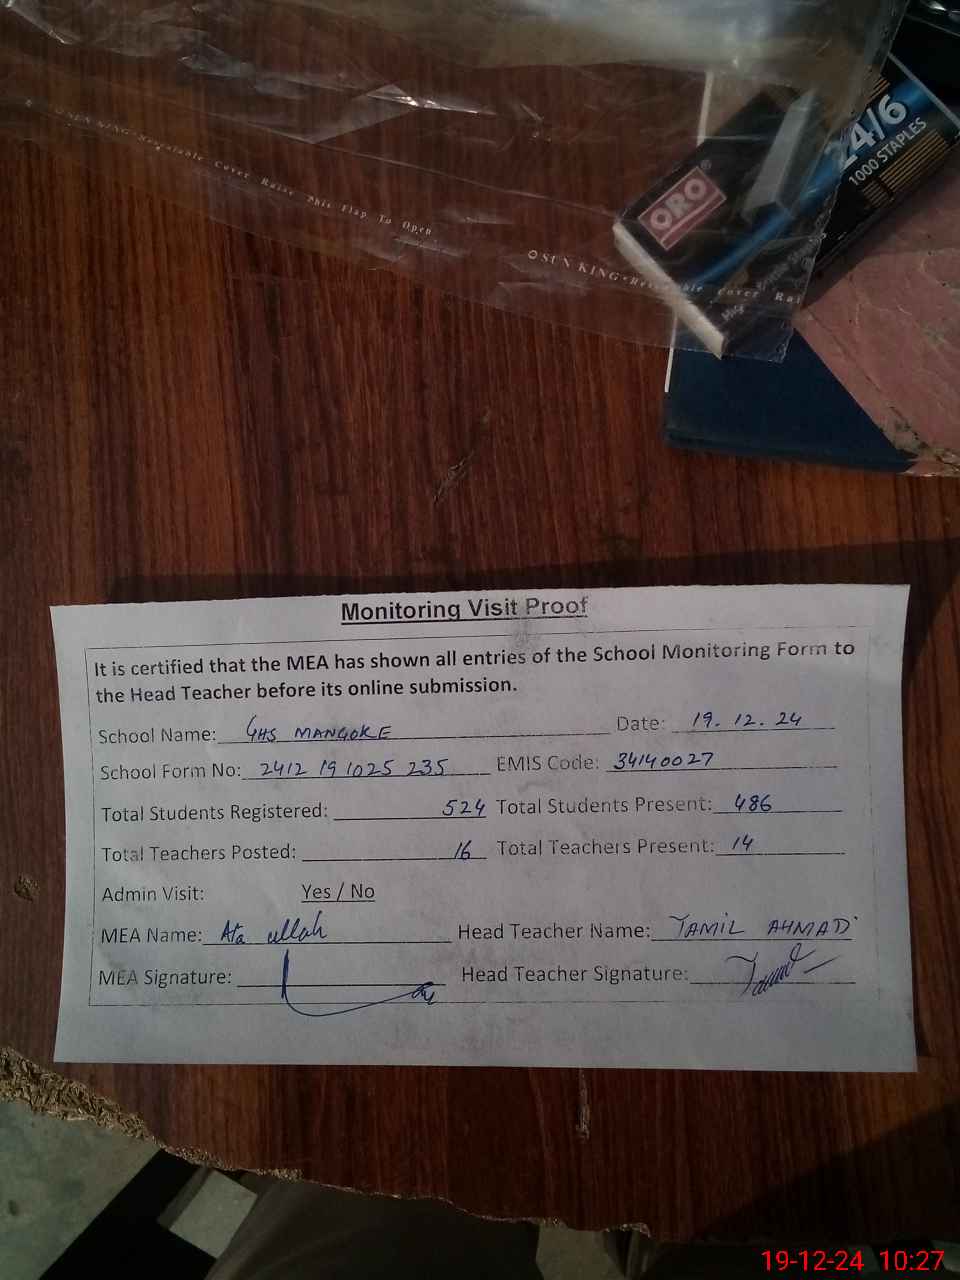 24/6
1000 STAPLES
ORO®
SUN KING Resealable Cover Raise This Flap To Open
SUN KING Resealable Cover Rai
Monitoring Visit Proof
It is certified that the MEA has shown all entries of the School Monitoring Form to
the Head Teacher before its online submission.
School Name: GHS MANGOKE Date: 19.12.24
School Form No: 2412 19 1025 235 EMIS Code: 34140027
Total Students Registered: 524 Total Students Present: 486
Total Teachers Posted: 16 Total Teachers Present: 14
Admin Visit: Yes / No
MEA Name: Ata ullah Head Teacher Name: JAMIL AHMAD
MEA Signature: Head Teacher Signature:
19-12-24 10:27